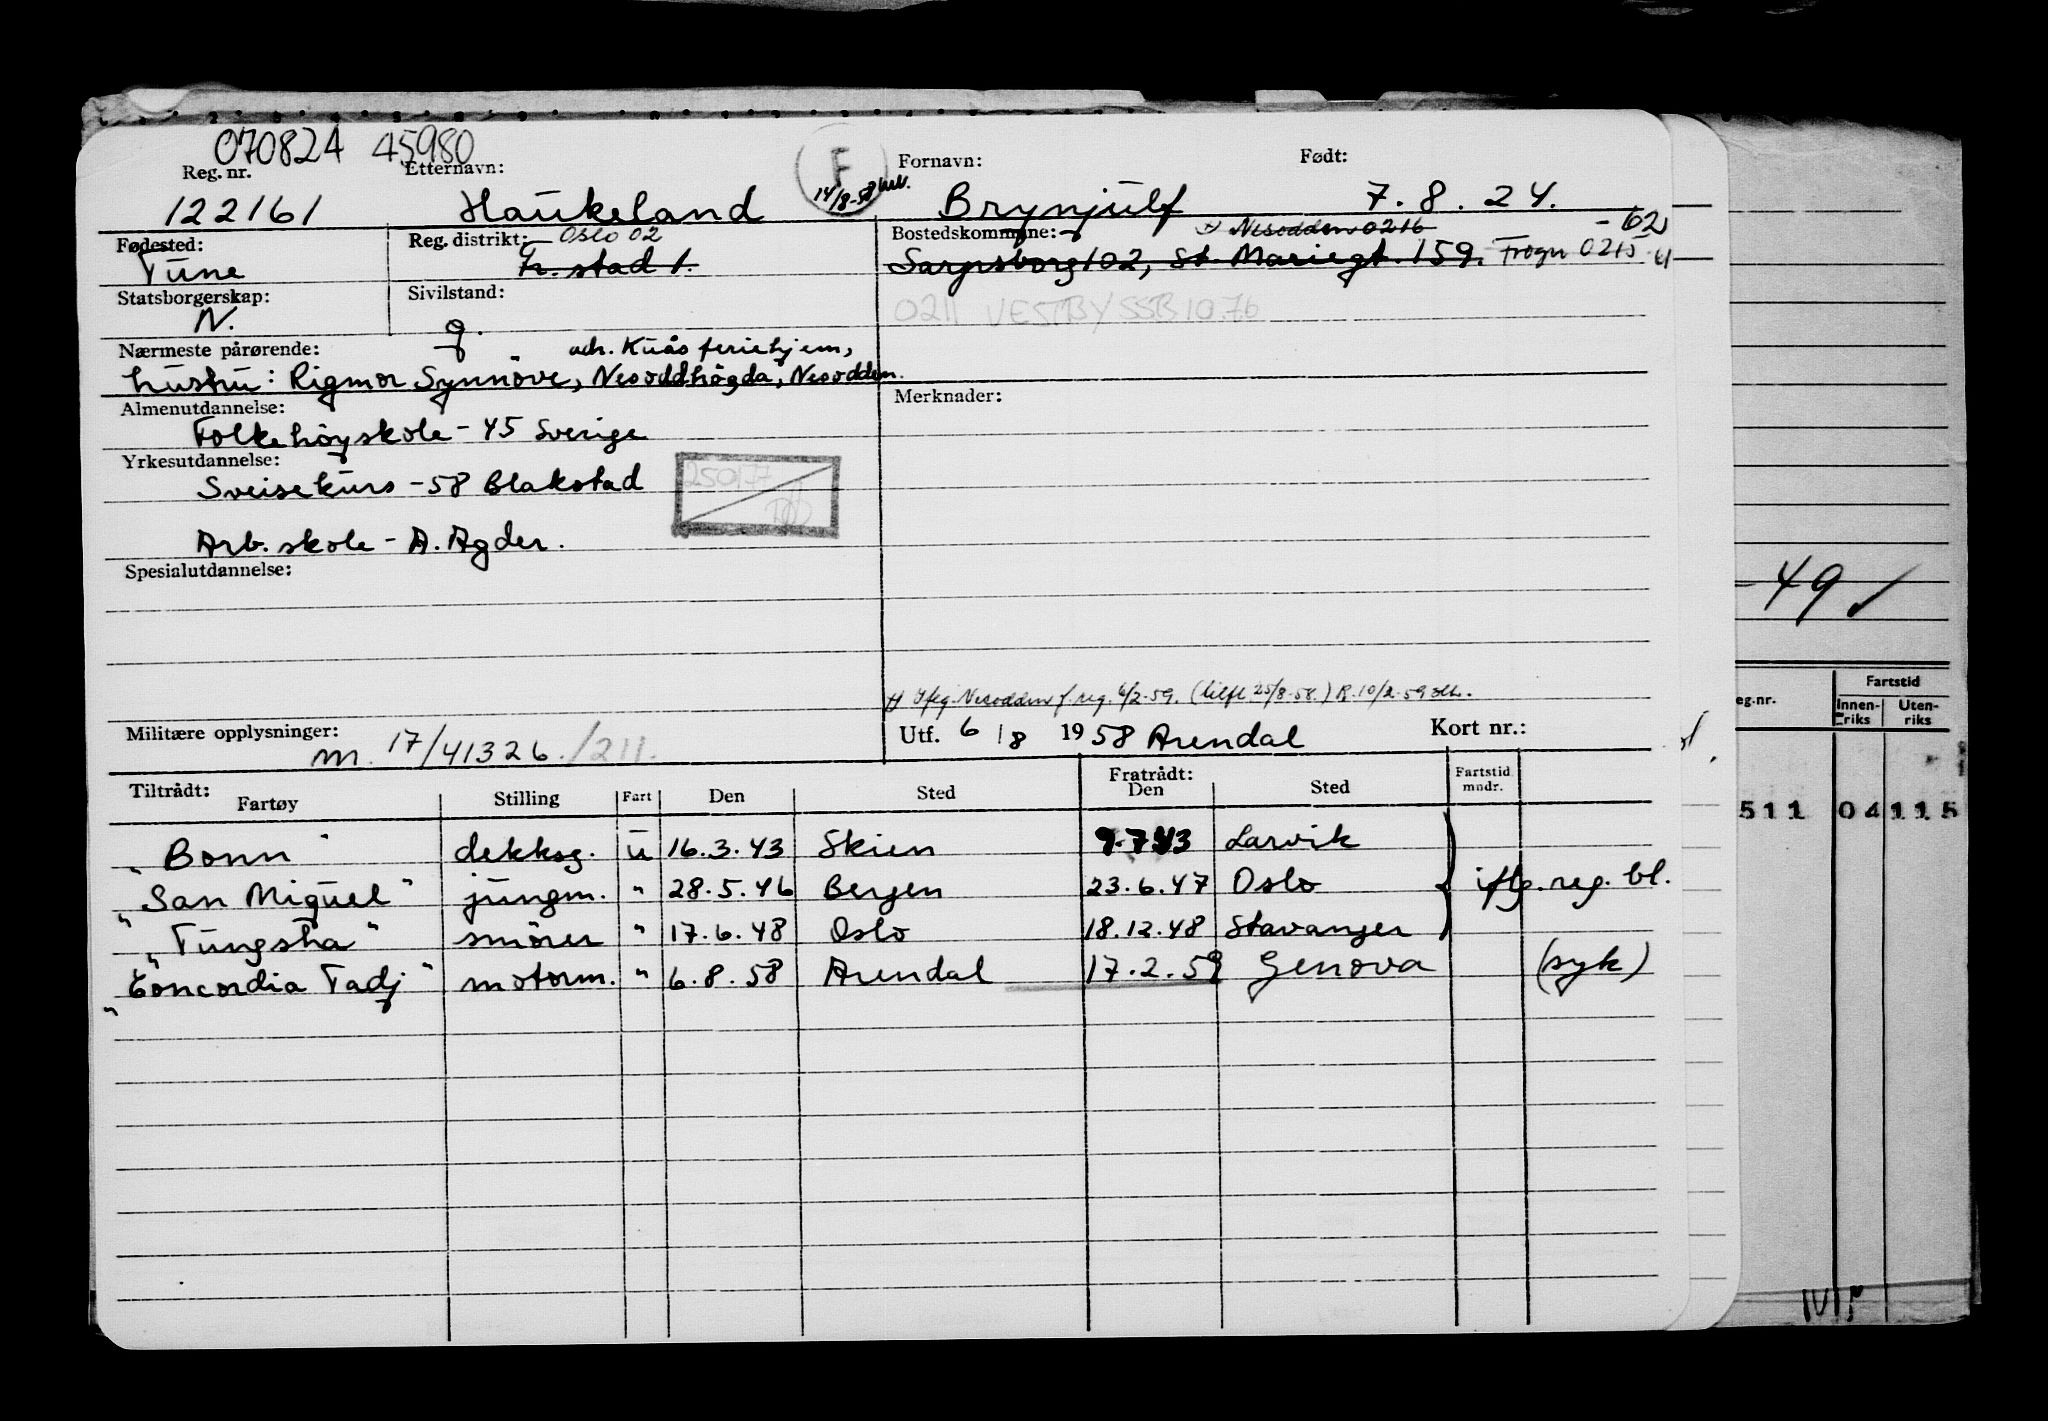 070824 45980
Reg. nr. Etternavn: Fornavn: Født:
F
14/8-58
122161 Haukeland Brynjulf 7. 8. 24.
Fødested: Reg. distrikt: Oslo 02 Bostedskommune: x) Nesodden 0216 -62
Tune Fr. stad 1. Sarpsborg 102, St. Mariegt. 159. Frogn 0215
Statsborgerskap: Sivilstand:
N. g.
0211 VESTBY SSB 10.76
Nærmeste pårørende: adr. Kuås feriehjem,
hustru: Rigmor Synnöve, Nesoddhögda, Nesodden.
Almenutdannelse: Merknader:
Folkehöyskole - 45 Sverige
Yrkesutdannelse:
Sveisekurs - 58 Blakstad
250177
Arb. skole - A. Agder.
Spesialutdannelse:
x) Ifлg. Nesodden f. reg. 6/2-59. (tilfl. 25/8-58.) R. 10/2-59
Militære opplysninger: m. 17/41326./211.
Utf. 6/8 1958 Arendal Kort nr.:
Tiltrådt: Fratrådt:
Fartøy Stilling Fart Den Sted Den Sted Fartstid mndr.
"Bonn" dekksg. u 16.3.43 Skien 9.7.43 Larvik
"San Miguel" jungm. " 28.5.46 Bergen 23.6.47 Oslo iflg. reg. bl.
"Tungsha" smörer " 17.6.48 Oslo 18.12.48 Stavanger
"Concordia Tadj" motorm. " 6.8.58 Arendal 17.2.59 Genova (syk)
-49
Fartstid
eg.nr. Innen-riks Uten-riks
511 04 115